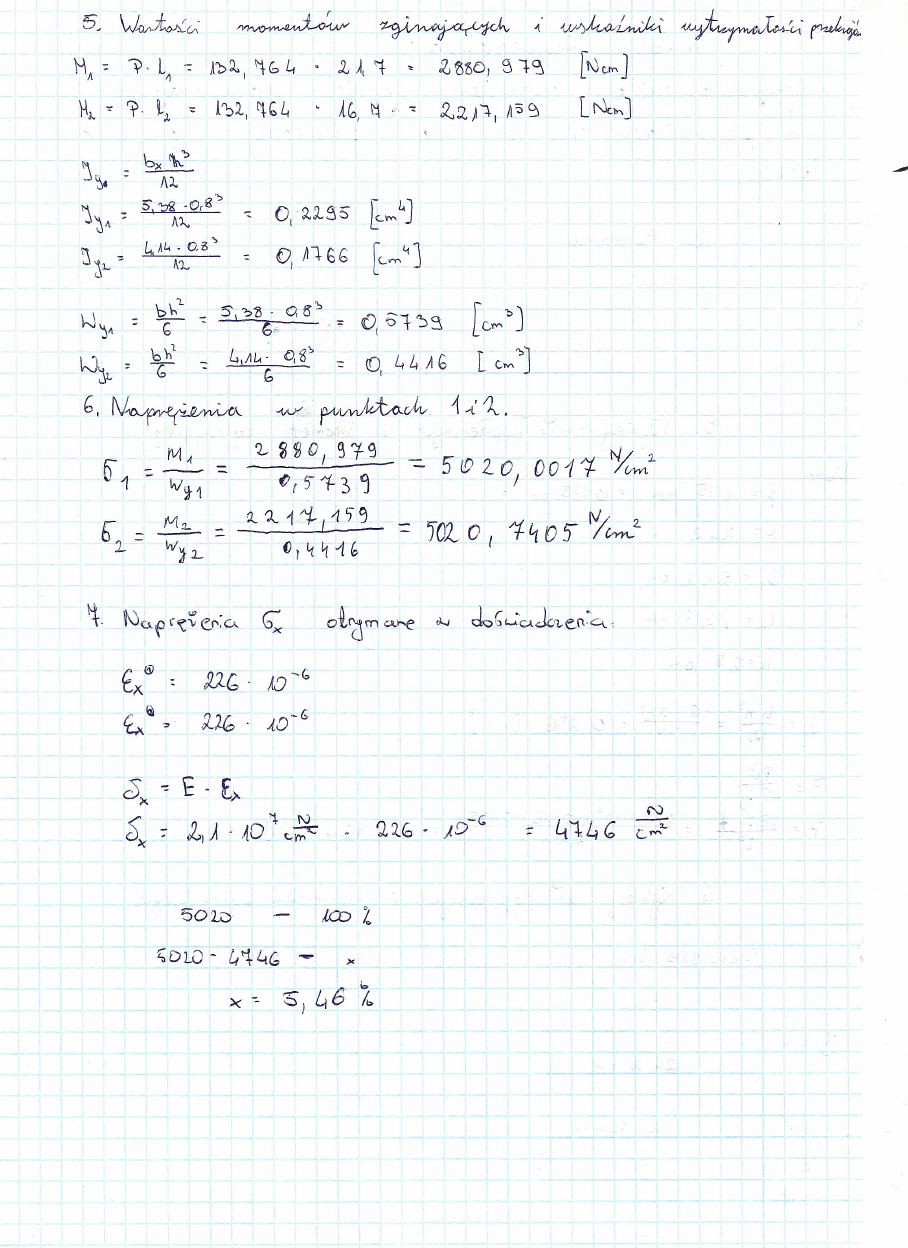 5. Wartości momentów zginających i wskaźniki wytrzymałości przekroju
M₁ = P · L₁ = 132,764 · 21,7 = 2880,979 [Ncm]
M₂ = P · L₂ = 132,764 · 16,7 = 2217,159 [Ncm]
Jy = bₓ h³ / 12
Jy₁ = 5,38 · 0,8³ / 12 = 0,2295 [cm⁴]
Jy₂ = 4,14 · 0,8³ / 12 = 0,1766 [cm⁴]
Wy₁ = bh² / 6 = 5,38 · 0,8³ / 6 = 0,5739 [cm³]
Wy₂ = bh² / 6 = 4,14 · 0,8³ / 6 = 0,4416 [cm³]
6. Naprężenia w punktach 1 i 2.
σ₁ = M₁ / Wy₁ = 2880,979 / 0,5739 = 5020,0017 N/cm²
σ₂ = M₂ / Wy₂ = 2217,159 / 0,4416 = 5020,7405 N/cm²
7. Naprężenia σₓ otrymane z doświadzenia:
εₓ = 226 · 10⁻⁶
εₓ = 226 · 10⁻⁶
δₓ = E · εₓ
δₓ = 2,1 · 10⁷ N/cm² · 226 · 10⁻⁶ = 4746 N/cm²
5020 – 100%
5020 - 4746 – x
x = 5,46%